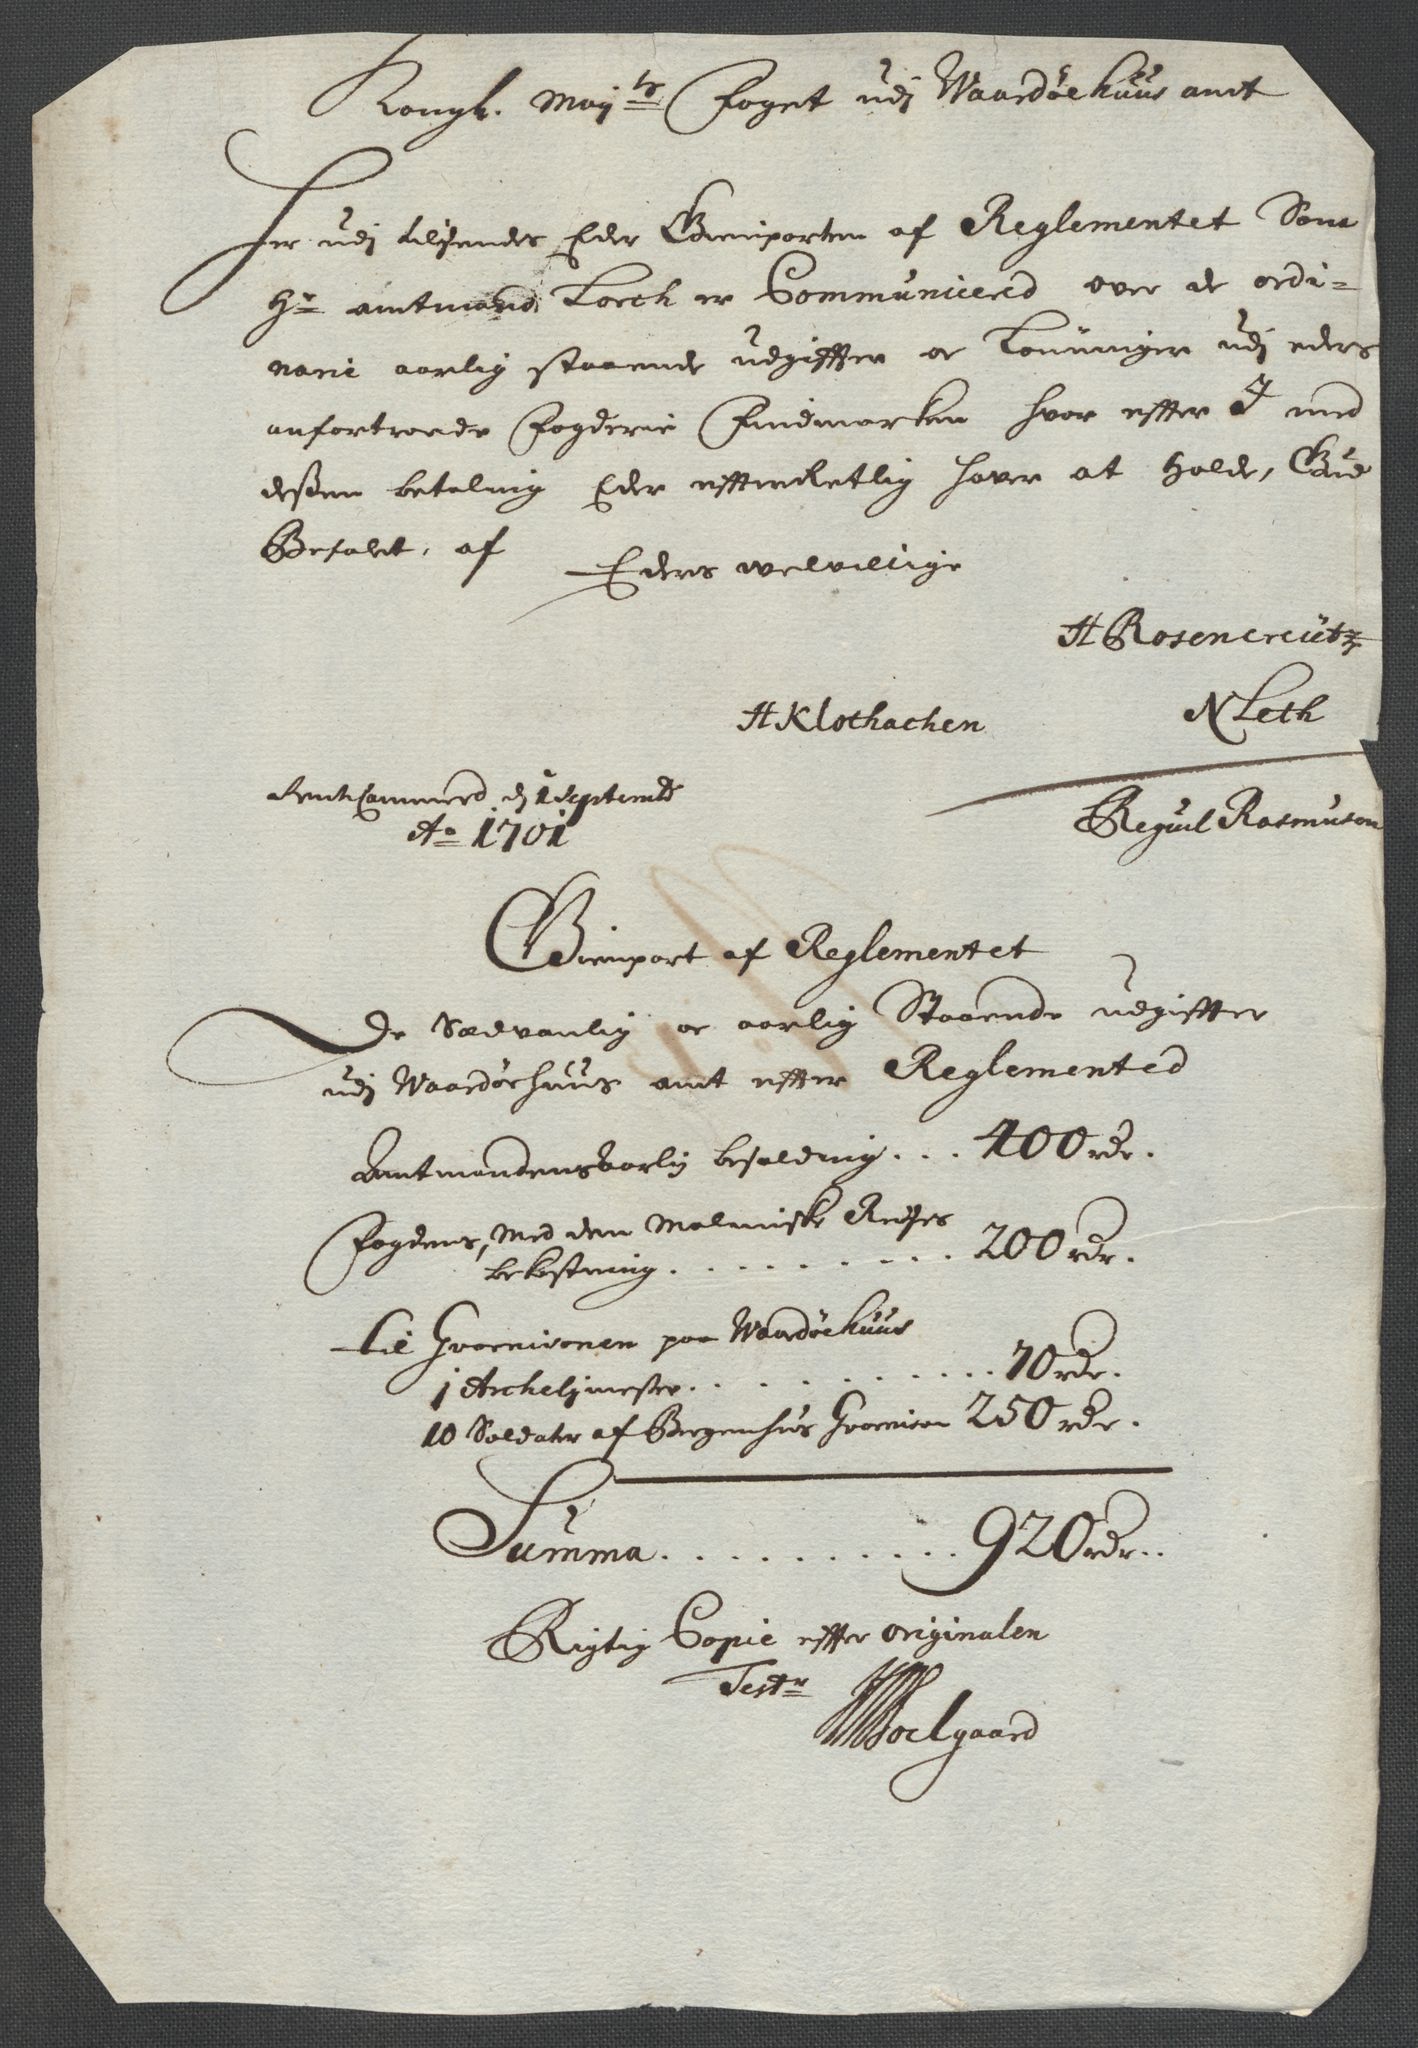 Kongl. May:ts Foget udj Waardöehuus amt
Her udj tilsendes Eder Gienparten af Reglementet Som
Hr amtmand Lorch er Communicered over de ordi-
narie aarlig staaende udgiffter oc Lönninger udj eders
anfortroede Fogderie Findmarken hvor effter I med
dessen betaling Eder effterretlig haver at holde, Gud
Befalet, af
Eders velvillige
H Rosencreütz
H Klothachen N Leth
Rentecammered dj 1 Septembr
Ao 1701
Regust Rasmusen
Gienpart af Reglementet
De Sædvanlig oc aarlig Staaende udgiffter
udj Waardöehuus amt effter Reglemented
Amtmandens aarlig besolding . . . 400 rdr.
Fogdens, Med den Malmiske Reises
bekostning . . . . . . . . . 200 rdr.
til Guarnisonen paa Waardöehuus
1 Archelymester . . . . . . . . . . . 70 rdr.
10 Soldater af Bergenhus Guarnison 250 rdr.
Summa . . . . . . . . . . 920 rdr..
Rigtig Copie effter originalen
Testr
Soelgaard